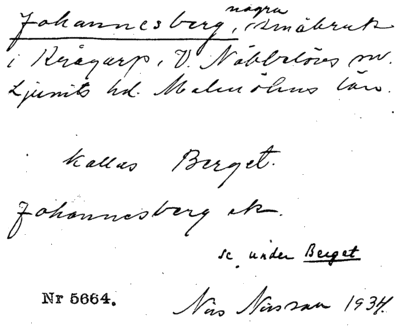 Johannesberg, några småbruk
i Krågarp, V. Nöbbelövs sn.
Ljunits hd. Malmöhus län.
kallas Berget.
Johannesberg ek.
se under Berget
Nr 5664. 1934.